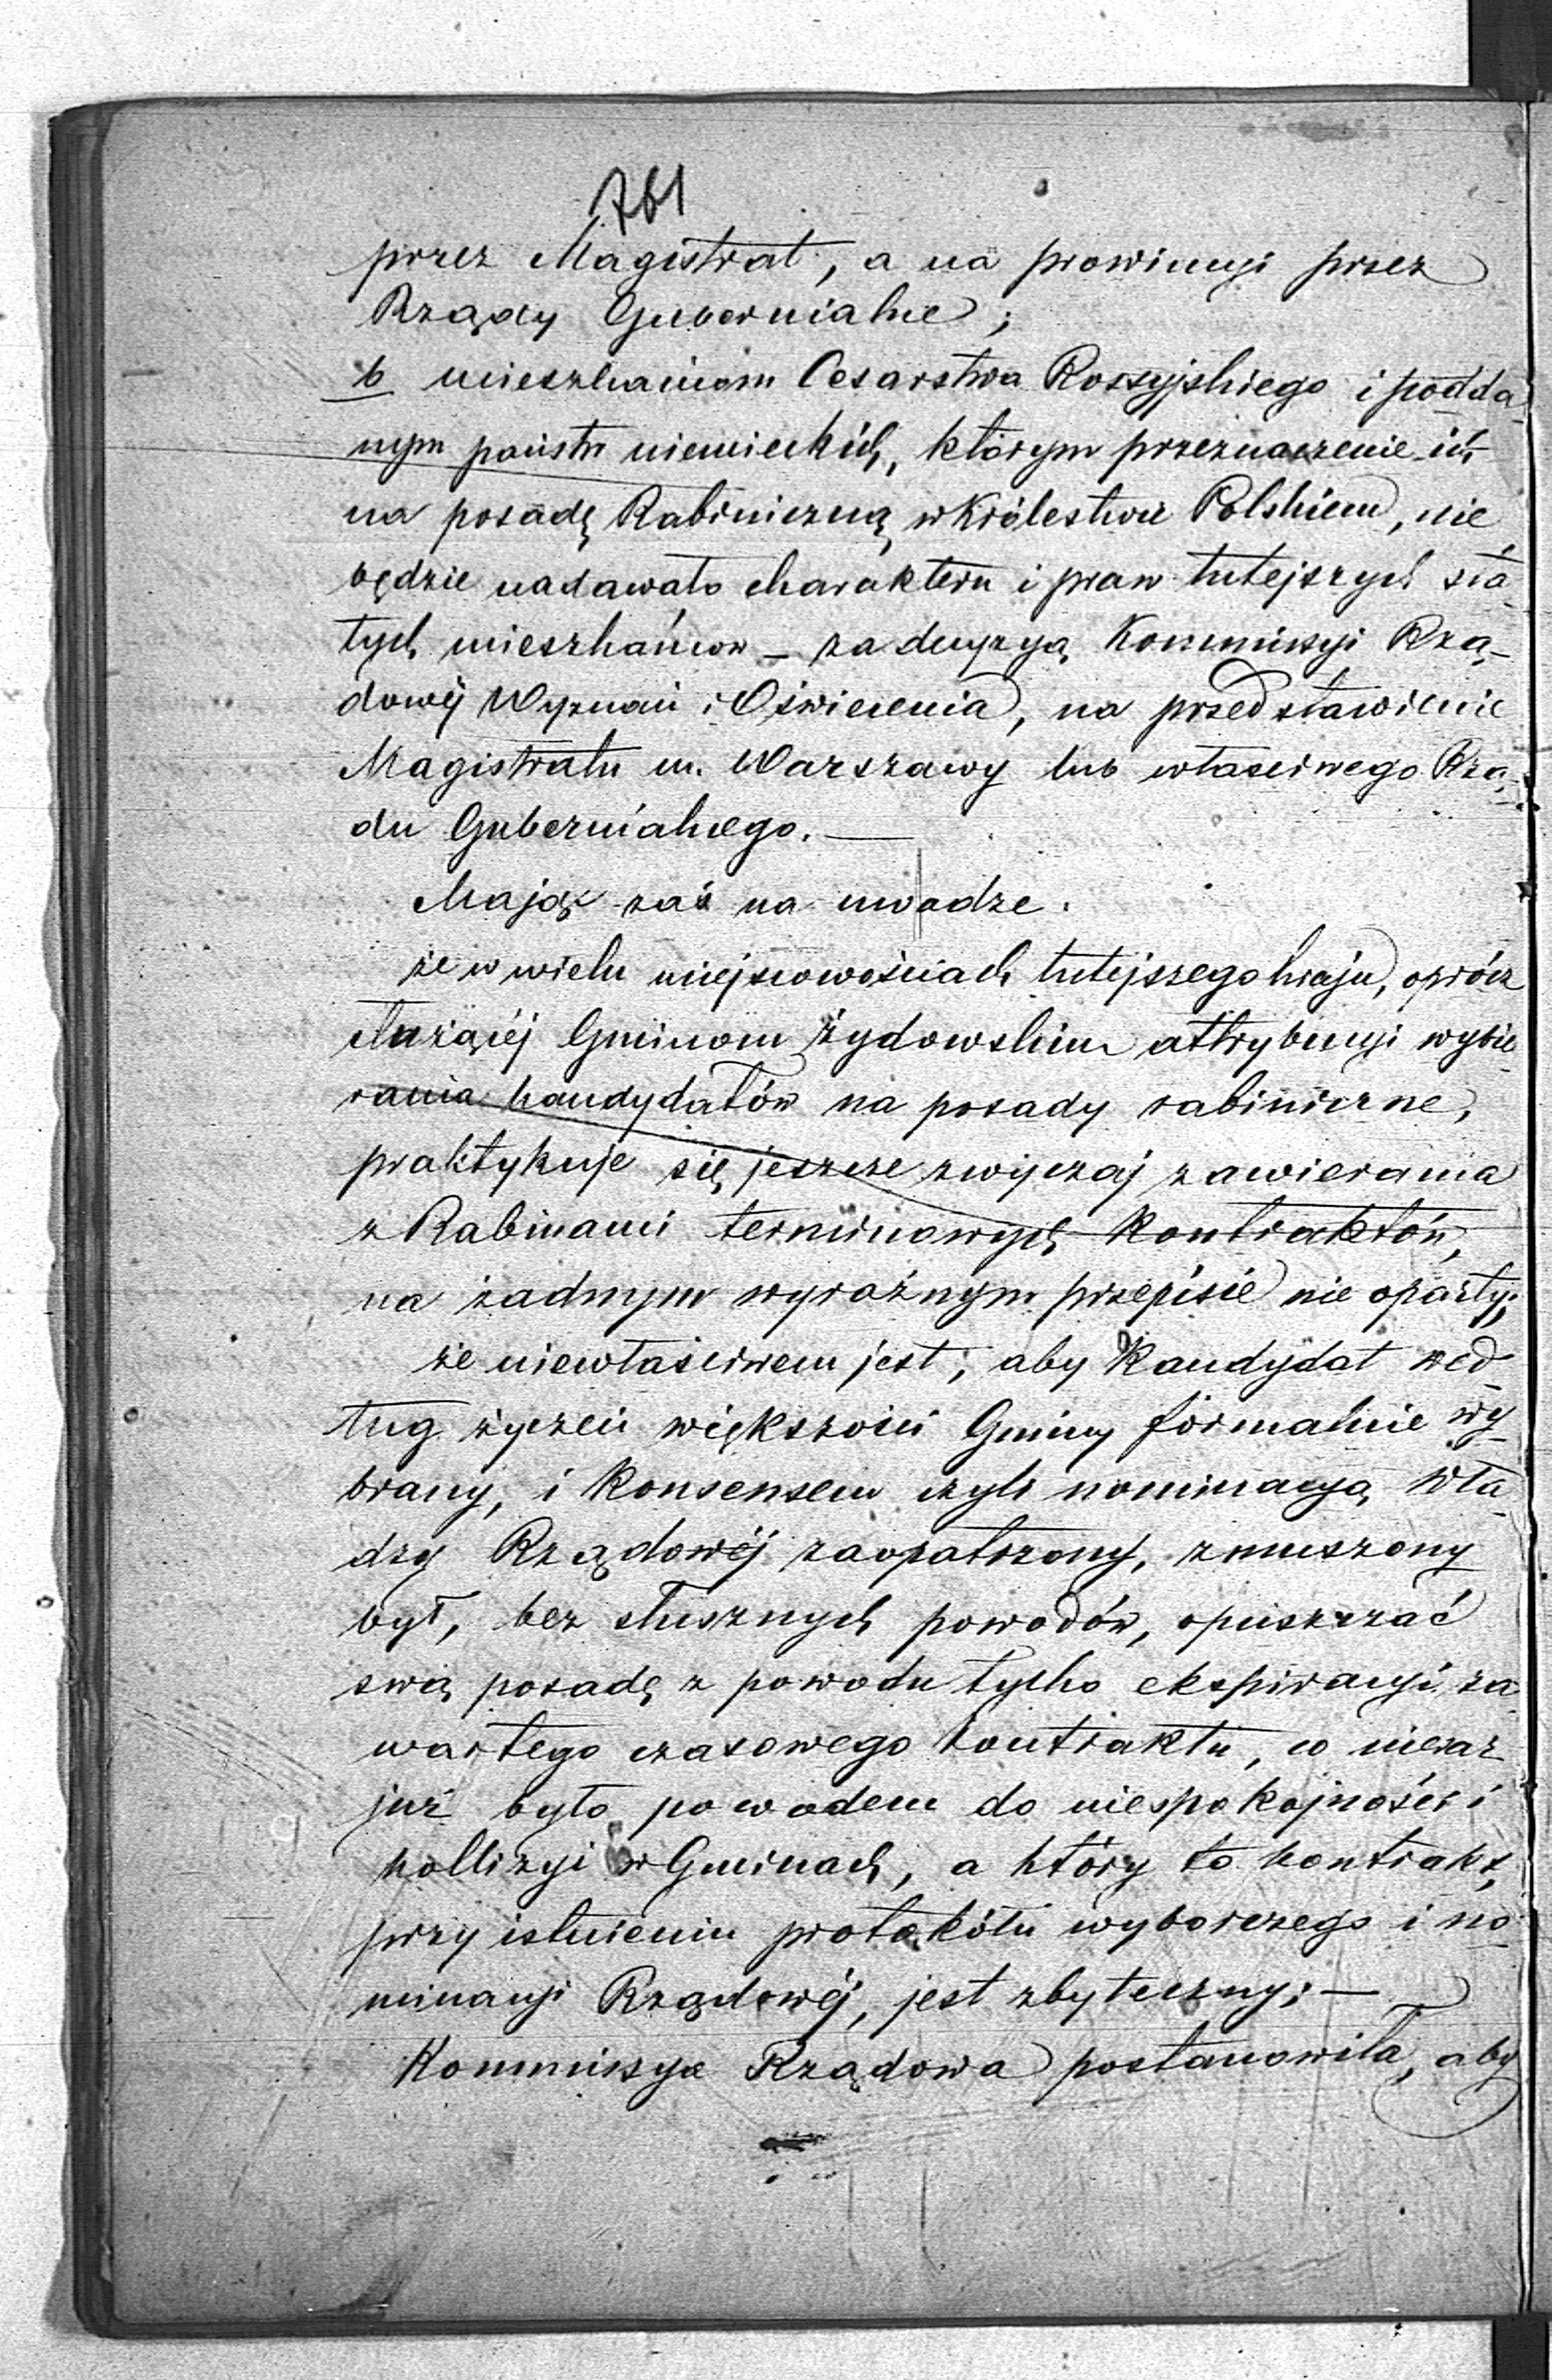 761
przez Magistrat, a na prowincyi przez
Rządy Gubernialne;
b mieszkańcom Cesarstwa Rossyjskiego i podda
nym państw niemieckich, którym przeznaczenie ich
na posadę Rabiniczną w Królestwie Polskiem, nie
będzie nadawało charakteru i praw tutejszych sta
łych mieszkańców – za decyzyą Kommissyi Rzą-
dowéj Wyznań i Oświecenia, na przedstawienie
Magistratu m. Warszawy lub własciwego Rzą-
du Gubernialnego. —
Mając zaś na uwadze.
że w wielu miejscowościach tutejszego kraju, oprócz
służącéj Gminom żydowskim attrybucyi wybie
rania kandydatów na posady rabiniczne,
praktykuje się jeszcze zwyczaj zawierania
z Rabinami terminowych kontraktów,
na żadnym wyraźnym przepisie nie oparty;
że niewłaściwem jest, aby Kandydat wed-
ług życzeń większości Gminy formalnie wy
brany, i konsensem czyli nominacyą Wła-
dzy Rządowéj zaopatrzony, zmuszony
był, bez słusznych powodów, opuszczać
swą posadę z powodu tylko ekspiracyi za
wartego czasowego kontraktu, co nieraz
już było powodem do niespokojności i
kollizyi w Gminach, a który to kontrakt,
przy istnieniu protokółu wyborczego i no
minacyi Rządowéj, jest zbyteczny; —
Kommissya Rządowa postanowiła, aby